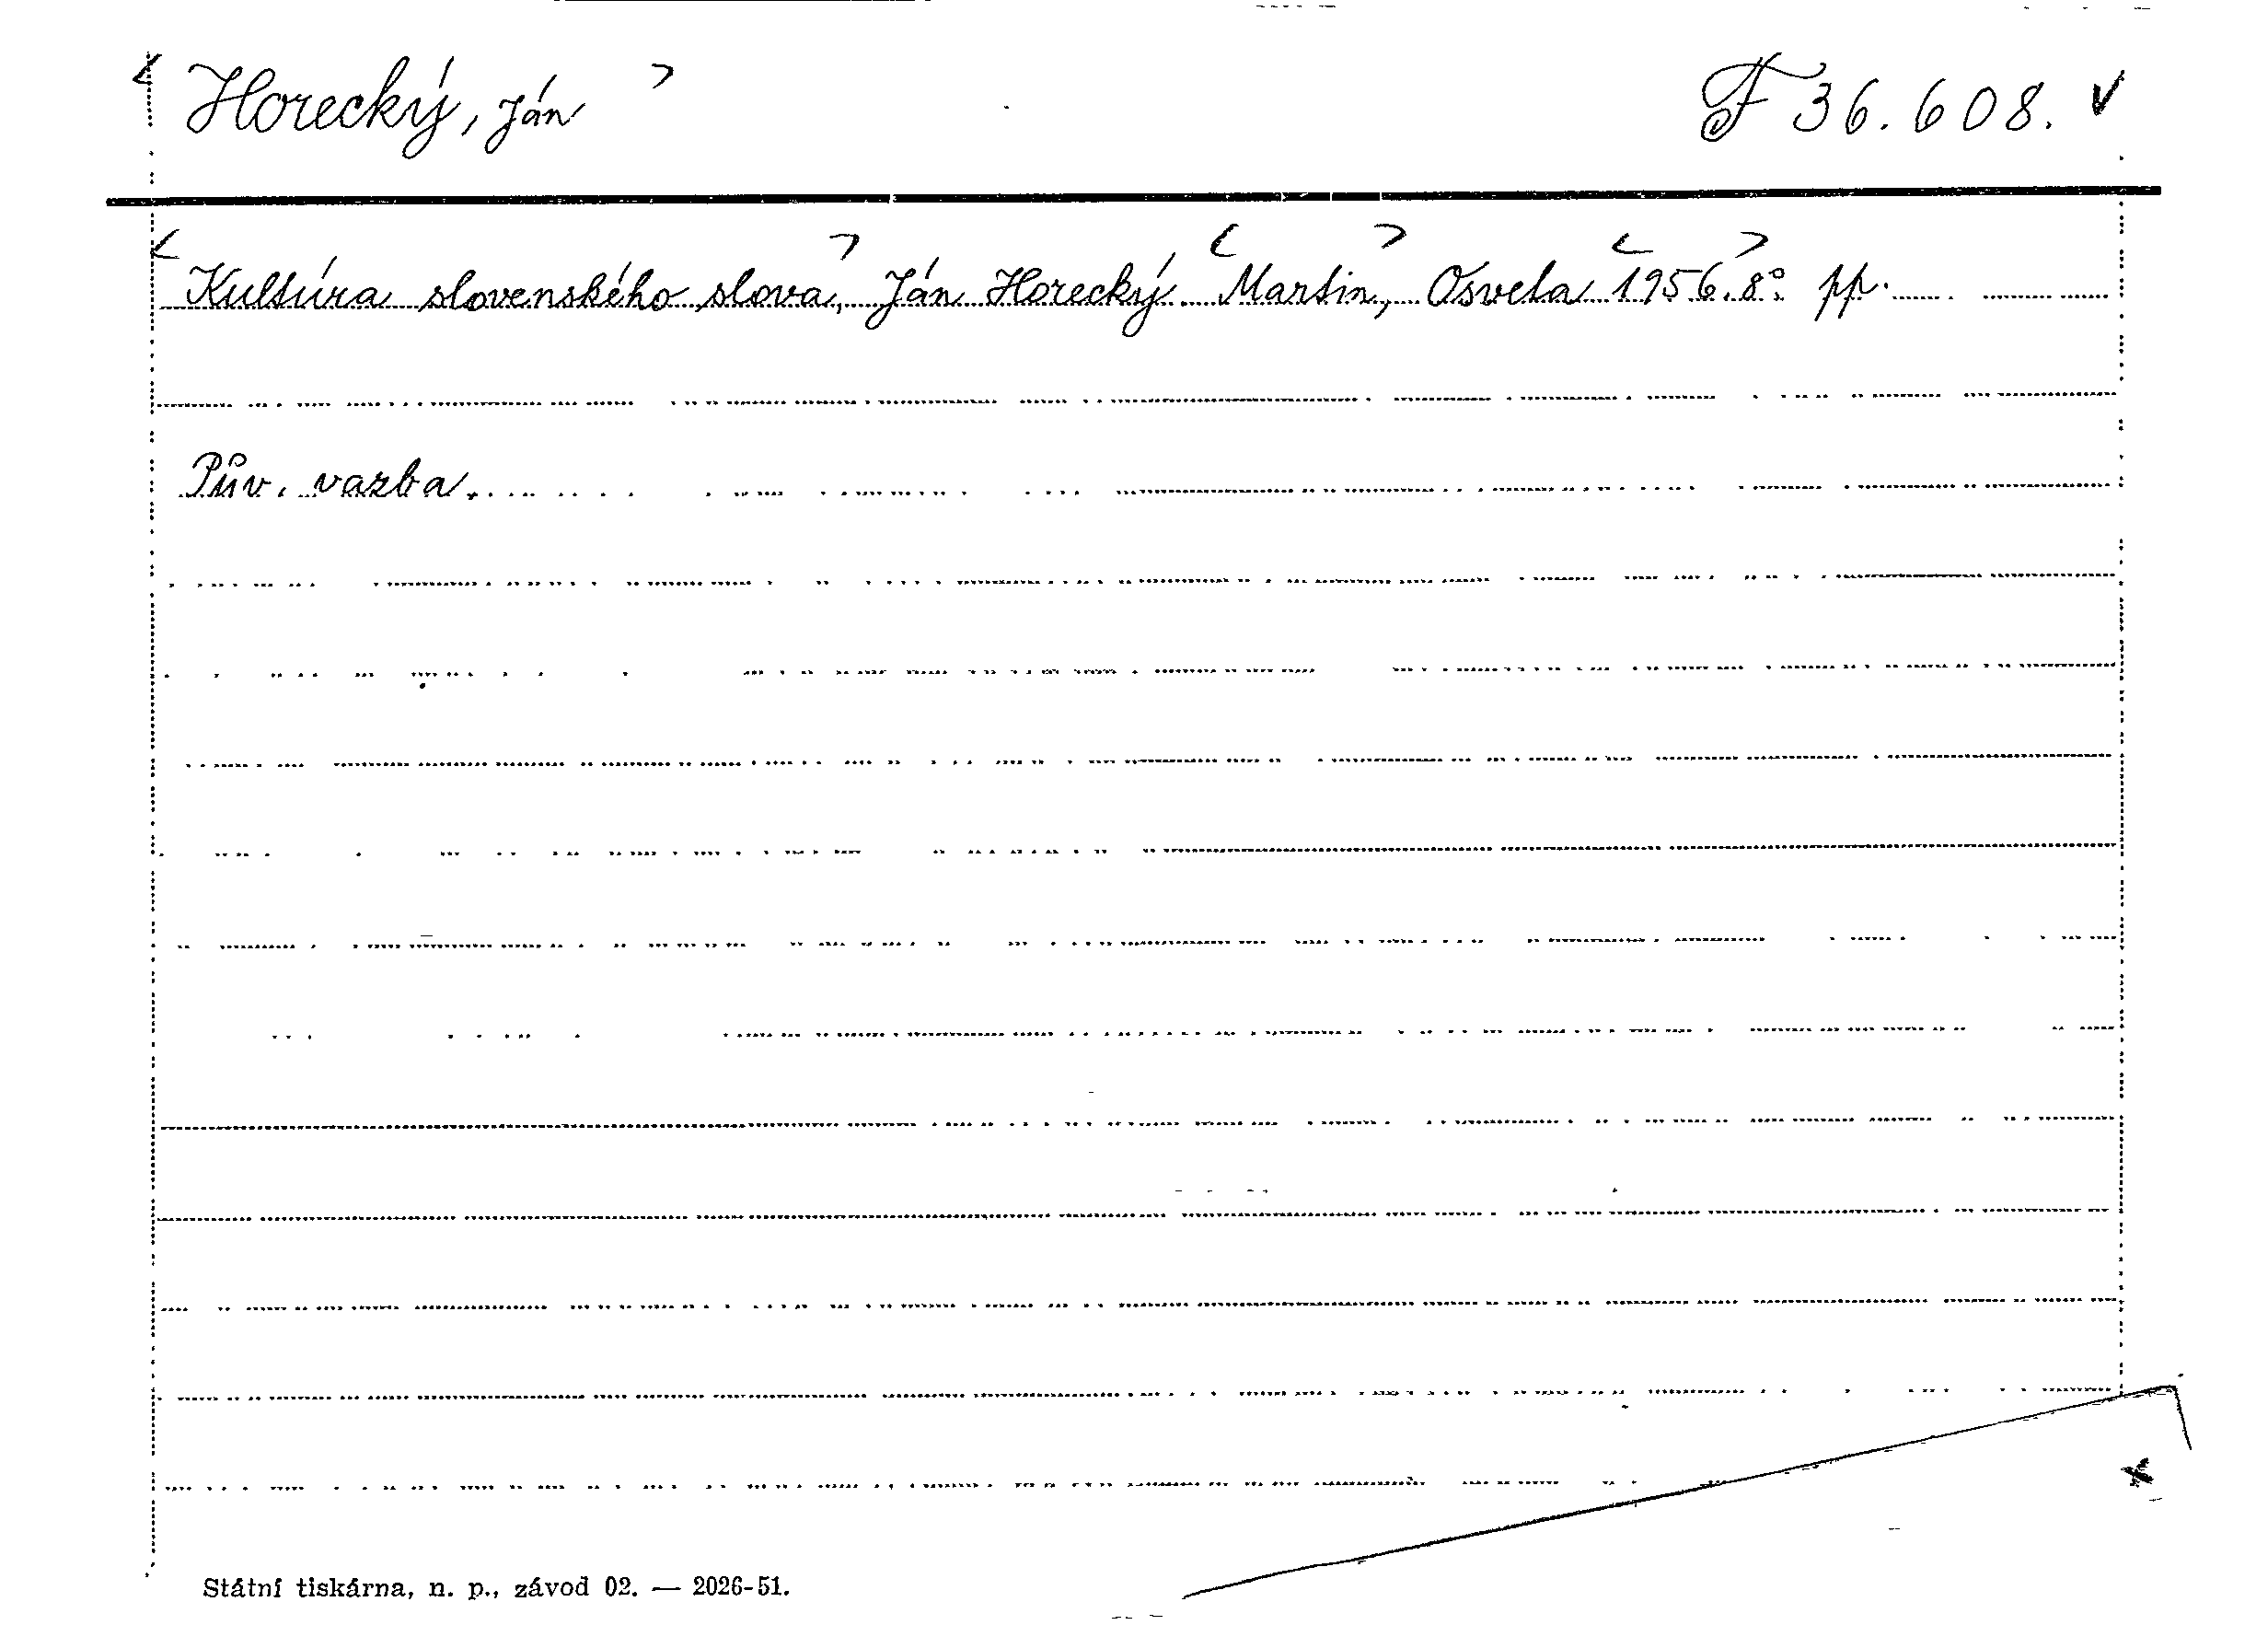 < Horecký, Ján > F 36.608. ✓
<Kultúra slovenského slova,> Ján Horecký <Martin,> Osveta <1956.> 8° pp.
Pův. vazba.
Státní tiskárna, n. p., závod 02. — 2026-51.